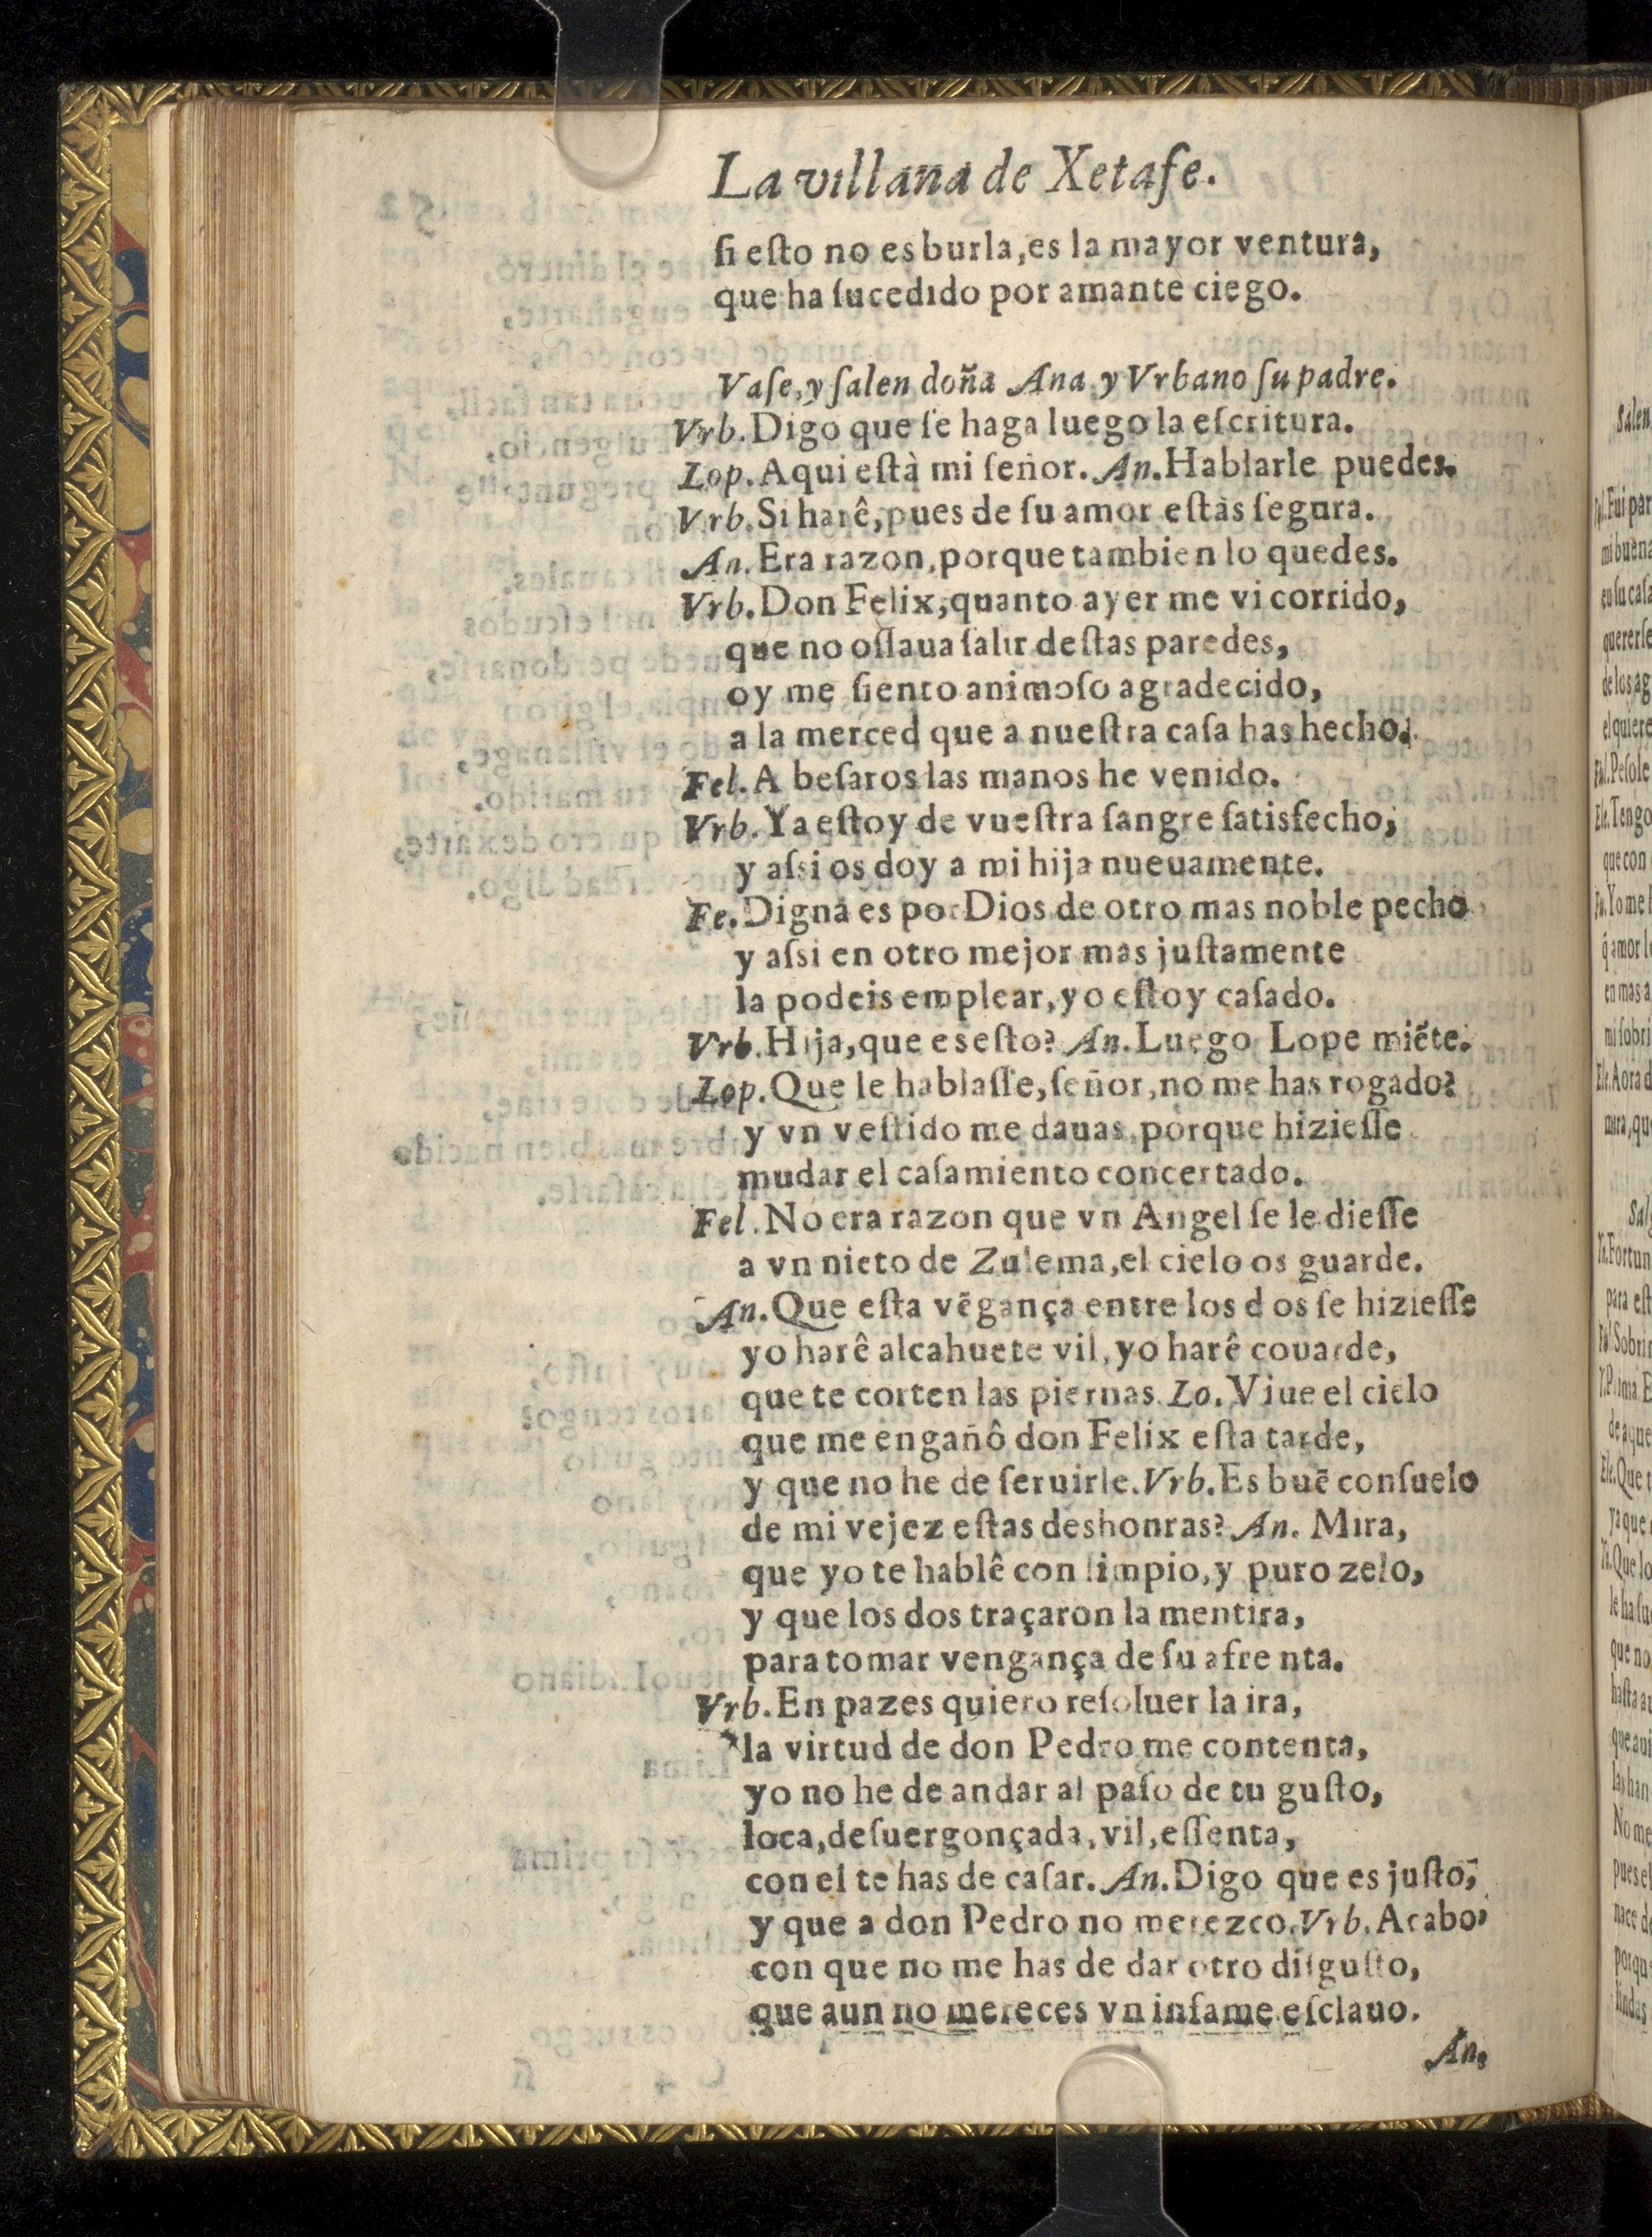 La villana de Xetafe.
si esto no es burla, es la mayor ventura,
que ha sucedido por amante ciego.
Vase, y salen doña Ana, y Vrbano su padre.
Vrb. Digo que se haga luego la escritura.
Lop. Aqui està mi señor. An. Hablarle puedes.
Vrb. Si harê, pues de su amor estàs segura.
An. Era razon, porque tambien lo quedes.
Vrb. Don Felix, quanto ayer me vi corrido,
que no ossaua salir destas paredes,
oy me siento animoso agradecido,
a la merced que a nuestra casa has hecho.
Fel. A besaros las manos he venido.
Vrb. Ya estoy de vuestra sangre satisfecho,
y assi os doy a mi hija nueuamente.
Fe. Digna es por Dios de otro mas noble pecho
y assi en otro mejor mas justamente
la podeis emplear, yo estoy casado.
Vrb. Hija, que es esto? An. Luego Lope miẽte.
Lop. Que le hablasse, señor, no me has rogado?
y vn vestido me dauas, porque hiziesse
mudar el casamiento concertado.
Fel. No era razon que vn Angel se le diesse
a vn nieto de Zulema, el cielo os guarde.
An. Que esta vẽgança entre los dos se hiziesse
yo harê alcahuete vil, yo harê couarde,
que te corten las piernas. Lo. Viue el cielo
que me engañô don Felix esta tarde,
y que no he de seruirle. Vrb. Es buẽ consuelo
de mi vejez estas deshonras? An. Mira,
que yo te hablê con limpio, y puro zelo,
y que los dos traçaron la mentira,
para tomar vengança de su afrenta.
Vrb. En pazes quiero resoluer la ira,
la virtud de don Pedro me contenta,
yo no he de andar al paso de tu gusto,
loca, desuergonçada, vil, essenta,
con el te has de casar. An. Digo que es justo,
y que a don Pedro no merezco. Vrb. Acabo,
con que no me has de dar otro disgusto,
que aun no mereces vn infame esclauo.
An.